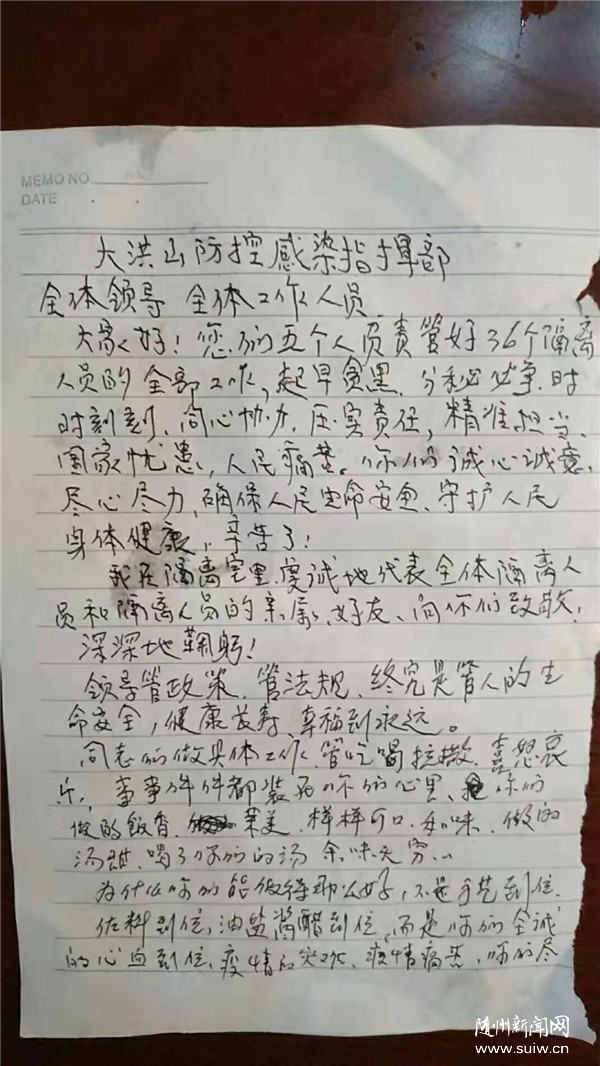 MEMO NO
DATE . .
大洪山防控感染指挥部
全体领导 全体工作人员
大家好！您们五个人员责管好36个隔离
人员的全部工作，起早贪黑、分秒必争、时
时刻刻、同心协力、压实责任，精准担当、
国家忧患，人民痛苦。你们诚心诚意、
尽心尽力、确保人民生命安全、守护人民
身体健康，辛苦了！
我在隔离室里、虔诚地代表全体隔离人
员和隔离人员的亲属、好友、向你们致敬，
深深地鞠躬！
领导管政策、管法规、终究是管人的生
命安全，健康长寿、幸福到永远。
同志们做具体工作、管吃喝拉撒、喜怒哀
乐，事事件件都装在你们心里、你们
做的饭香、菜美、样样可口、和味、做的
汤甜、喝了你们的汤 余味无穷…
为什么你们能做得那么好，不是手艺到位、
佐料到位，油盐酱醋到位、而是你们全诚
的心血到位、疫情的灾难、疫情痛苦、你们尽
随州新闻网
www.suiw.cn